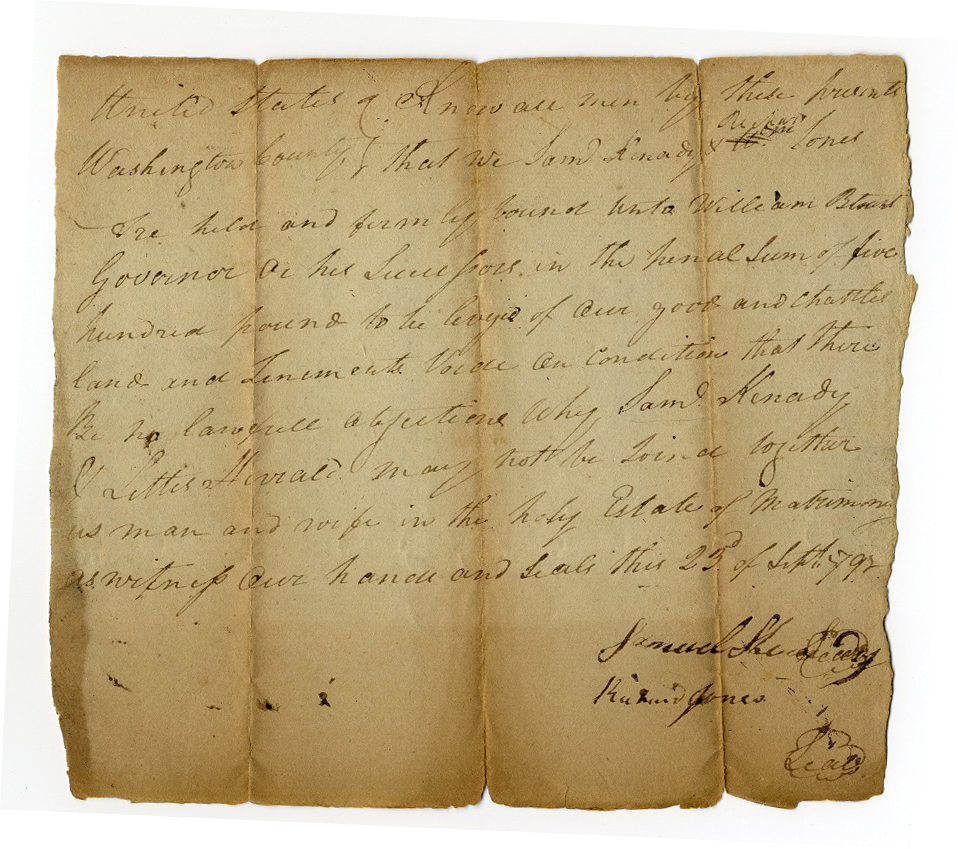 United States of } Know all men by these presents
Washington County } that we Saml Kenady & Richard Jones
Are held and firmly bound unto William Blount
Governor or his Successors in the penal Sum of five
hundred pound to be levyed of our good and Chattel
land and Tenements Voide on Condition that there
Be no lawfull objections Why Saml Kenady
& Lettis may not be Joind together
as man and wife in the holy Estate of Matrimony
as witness our hande and Seals this 23d of Sept 1792
Samuel Seal
Richard Jones
Seal